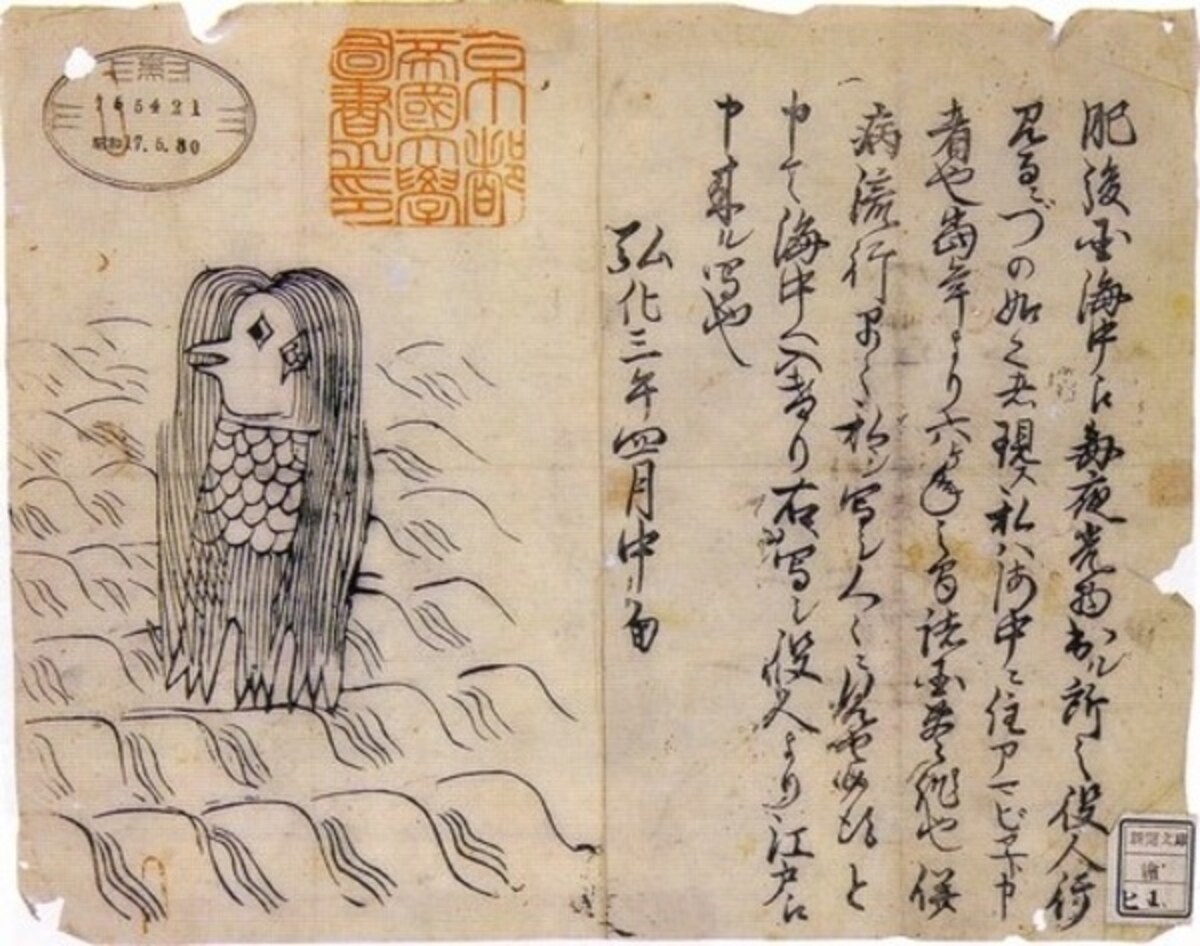 肥後国海中え毎夜光物出ル所之役人行
見るニづの如之者現ス私ハ海中ニ住アマビヱト申
者也當年より六ヶ年之間諸国豊作也併
病流行早々私シ写シ人々ニ見せ候得と
申て海中へ入けり右写シ役人より江戸え
申来ル写也
弘化三年四月中旬
京都
帝國大學
圖書之印
165421
昭和17.5.30
新聞文庫
繪
ヒ 1.